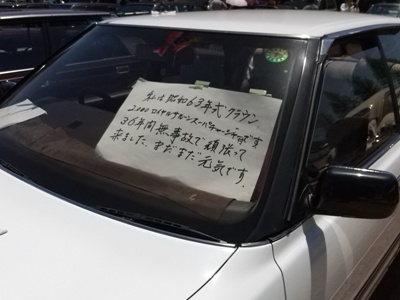 私は昭和63年式クラウン
2000ロイヤルサルーンスーパーチャージャーです
36年間無事故で頑張って
来ました、まだまだ元気です。